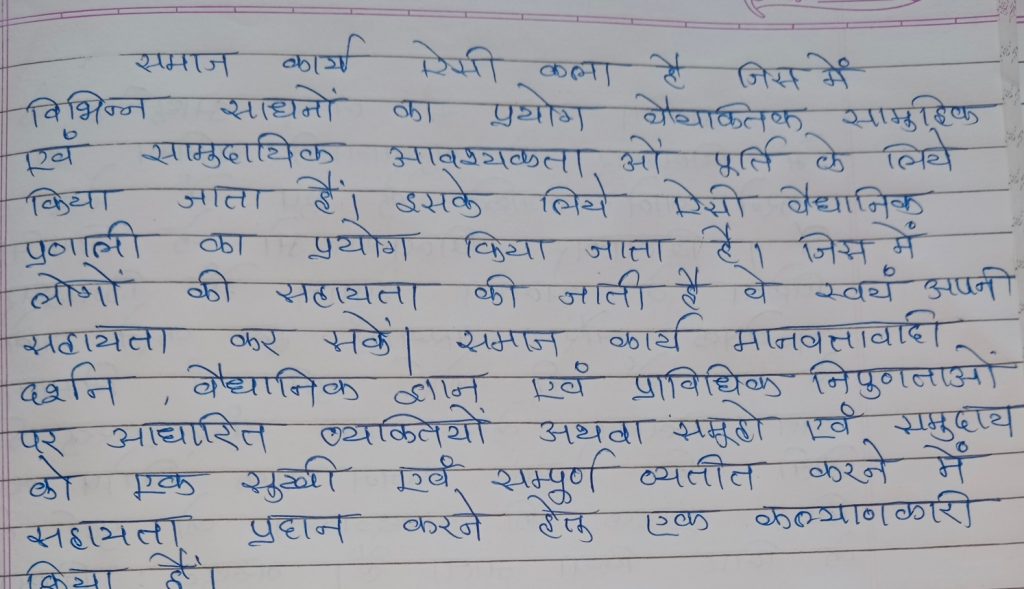 समाज कार्य ऐसी कला है जिस में
विभिन्न साधनों का प्रयोग वैयक्तिक सामुहिक
एवं सामुदायिक आवश्यकता ओं पूर्ति के लिये
किया जाता हैं। इसके लिये ऐसी वैधानिक
प्रणाली का प्रयोग किया जाता है। जिस में
लोगों की सहायता की जाती है वे स्वयं अपनी
सहायता कर सकें। समाज कार्य मानवतावादी
दर्शन , वैधानिक ज्ञान एवं प्राविधिक निपुणताओं
पर आधारित व्यक्तियों अथवा समूहो एवं समुदाय
को एक सुखी एवं सम्पुर्ण व्यतीत करने में
सहायता प्रदान करने हेतु एक कल्याणकारी
क्रिया हैं।